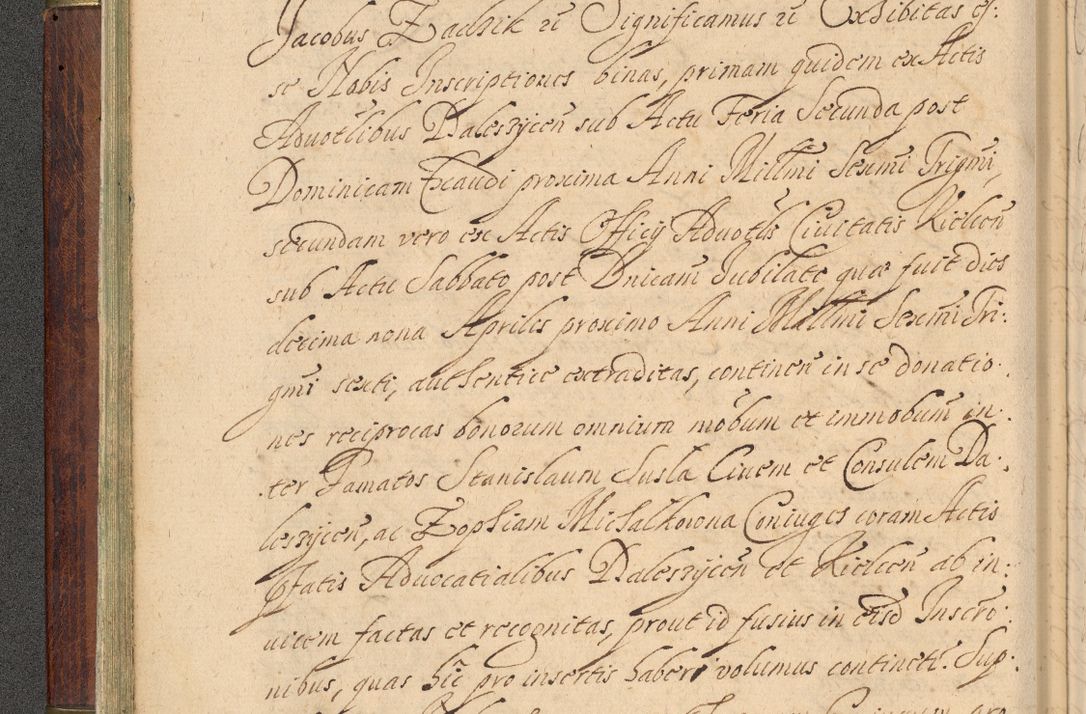 Jacobus Zadzik etc Significamus etc Exhibitas es:
se Nobis Inscriptiones binas, primam quidem ex Actis
Aduotlibus Daleszycen̄ sub Actu Feria Secunda post
Dominicam Exaudi proxima Anni Millm̄i Sexm̄i Trigm̄i,
secundam vero ex Actis Officij Aduotlis Ciuitatis Kielcen̄
sub Actu Sabbato post Dnicam̄ Jubilate quæ fuit dies
decima nona Aprilis proximo Anni Millm̄i Sexm̄i Tri:
gm̄i sexti, authentice extraditas, continen̄ in se donatio:
nes reciprocas bonorum omnium mōbum et immobum̄ in:
ter Famatos Stanislaum Susla Ciuem et Consulem Da:
leszycen̄, ac Zophiam Michalkowna Coniuges coram Actis
pfatis Aduocatialibus Daleszycen̄ et Kielcen̄ ab in:
uicem factas et recognitas, prout id fusius in eisd̄ Inscro:
nibus, quas hic̄ pro insertis haberi volumus continetī. Sup: